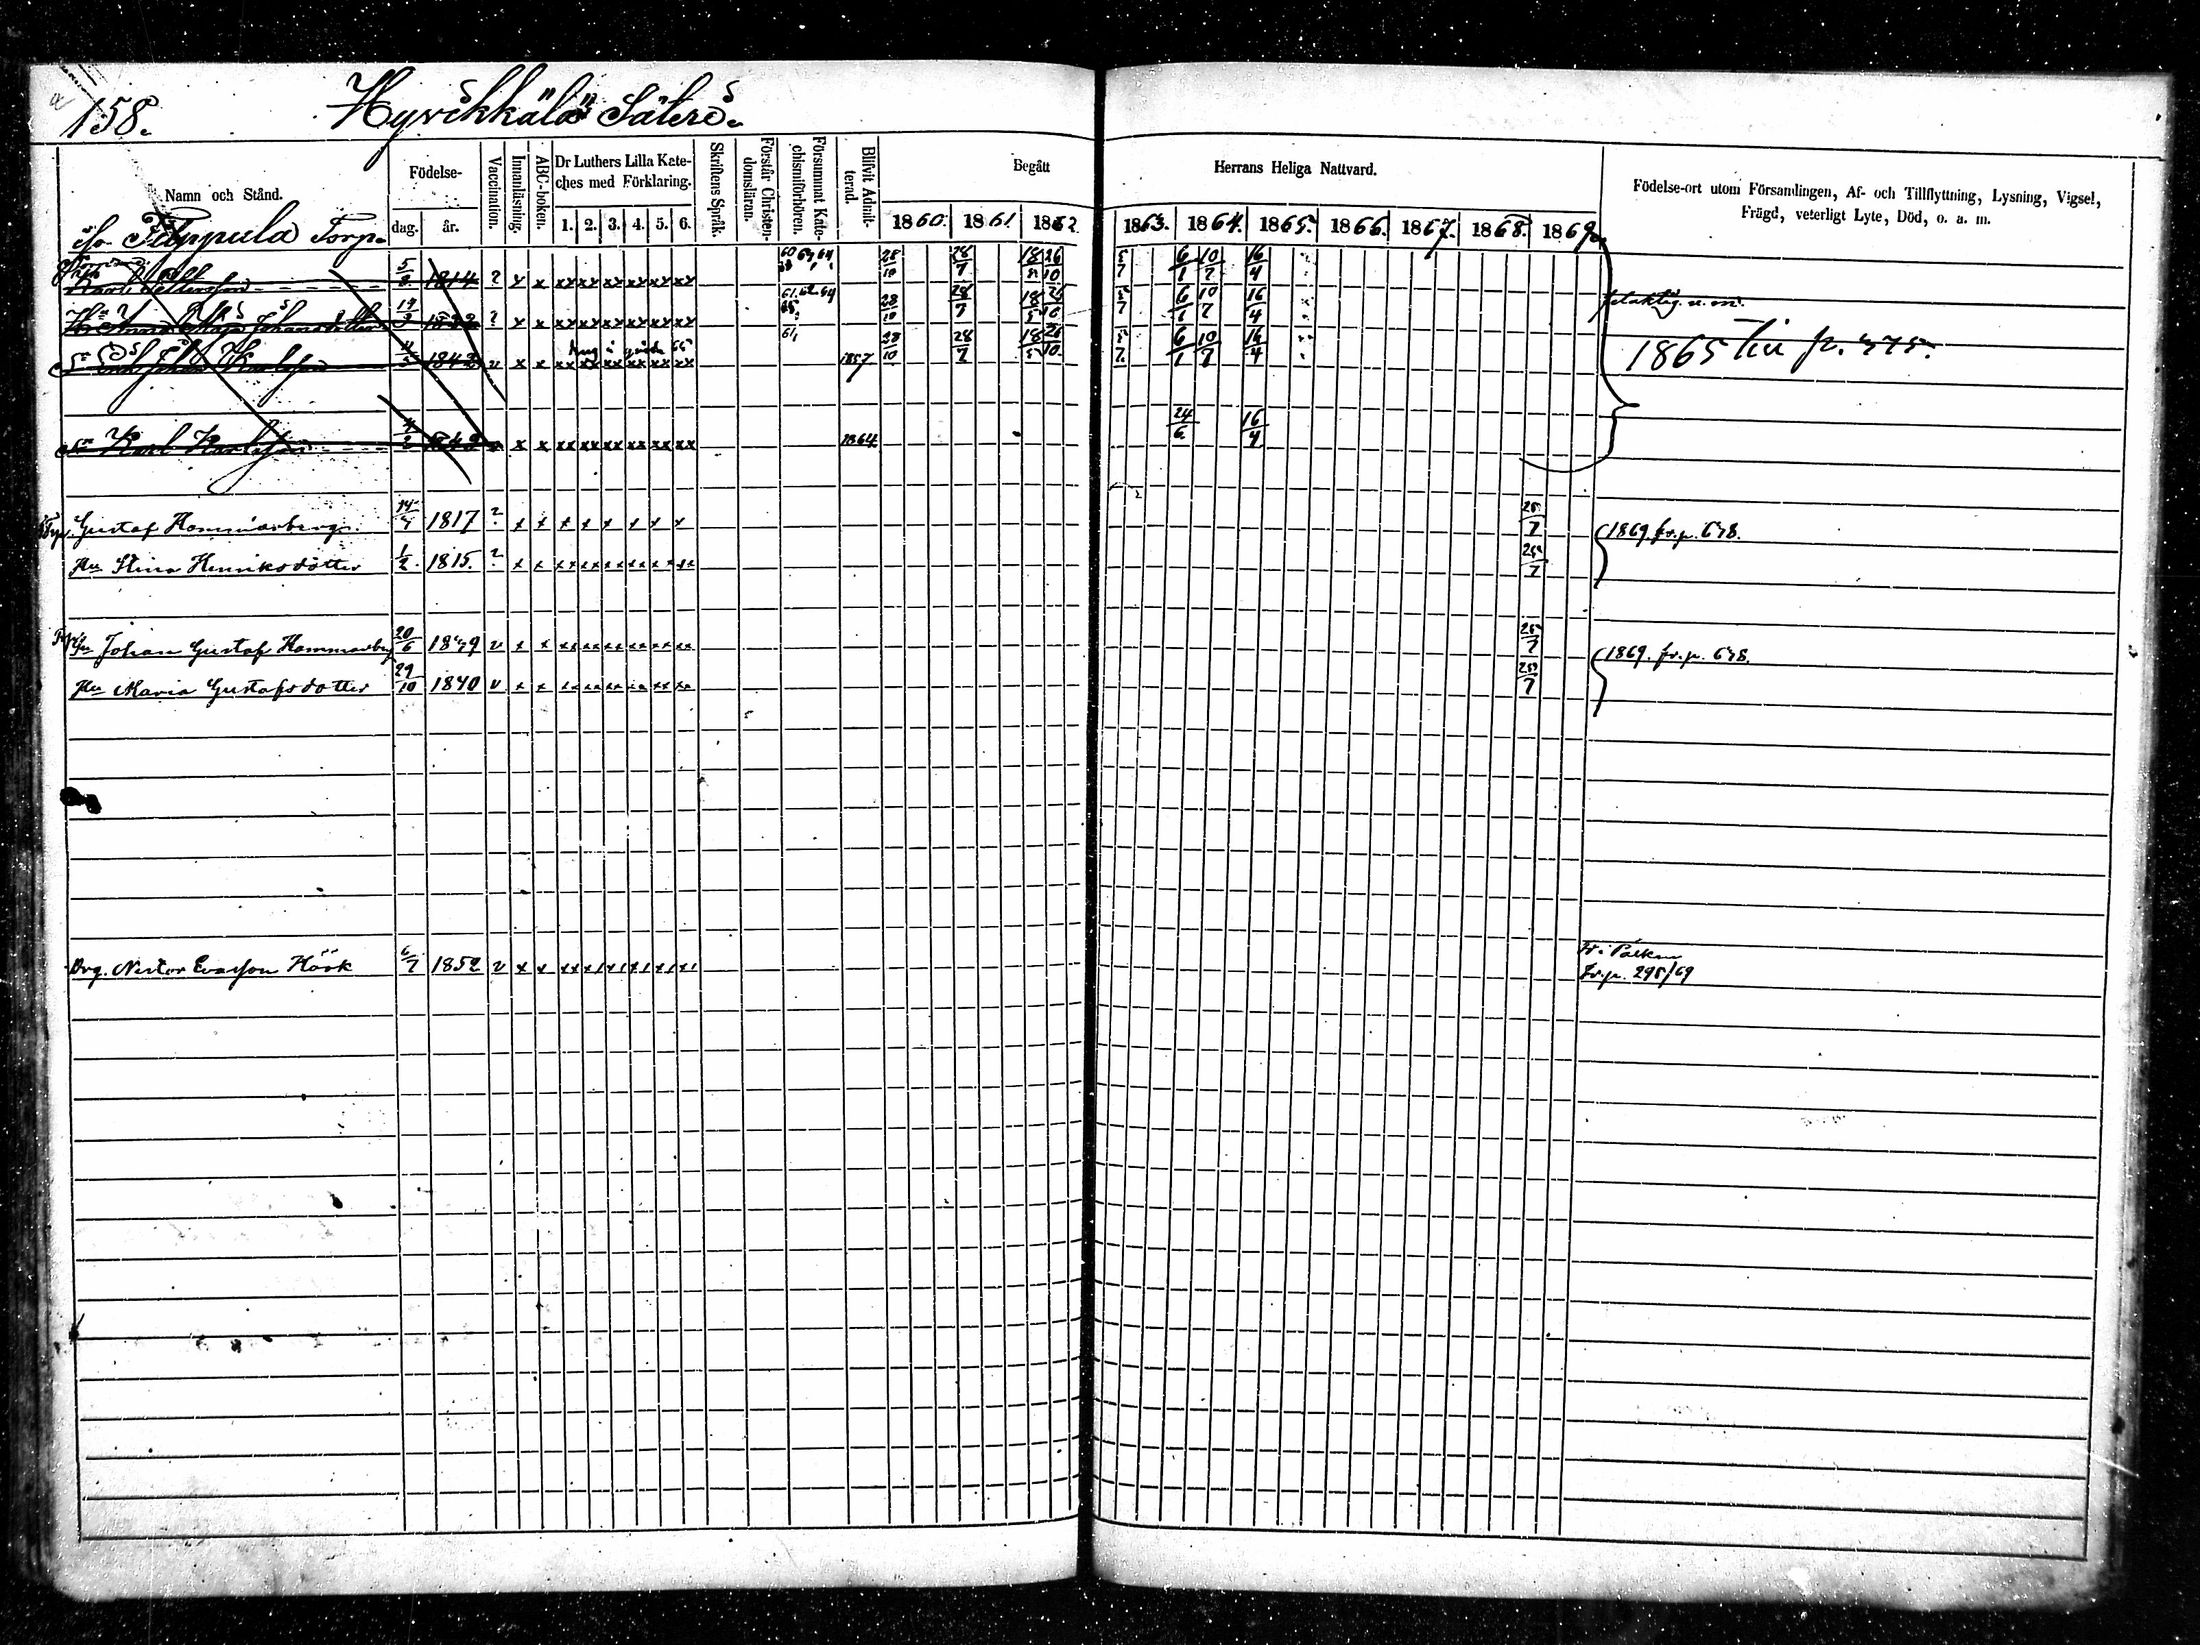 158.
Hyvikkälä Säteri.
Namn och Stånd.
Födelse-
dag. år.
Vaccination.
Innanläsning.
ABC-boken.
Dr Luthers Lilla Kate-
ches med Förklaring.
1. 2. 3. 4. 5. 6.
Skriftens Språk.
Förstår Christen-
domsläran.
Försummat Kate-
chismiförhören.
Blifvit Admit-
terad.
Begått
1860. 1861. 1862.
Herrans Heliga Nattvard.
1863. 1864. 1865. 1866. 1867. 1868. 1869.
Födelse-ort utom Församlingen, Af- och Tillflyttning, Lysning, Vigsel,
Frägd, veterligt Lyte, Död, o. a. m.
Filppula Torp.
Karl 5 1814 ? x x xx xx xx xx xx xx 28/10 28/7 5/7 6/1 10/7 16/4
Hu Anna Johansdotter ? x x xx xx xx xx xx xx 28/10 28/7 5/7 6/1 10/7 16/4
Karlsson 1842 v x x xx xx xx xx xx xx 1857 28/10 28/7 5/7 6/1 10/7 16/4
1865 p. 375.
Sn Karl Karlsson 4/2 x x xx xx xx xx xx xx 1864 24/6 16/4
Gustaf Hammarberg 1817 ? x x x x x x x x 25/7 1869 fr. p. 678.
Hu Stina Henriksdotter 1/2 1815. ? x x xx xx xx xx xx xx 25/7
Sn Johan Gustaf Hammarberg 20/6 1849 v x x xx xx xx xx xx xx 25/7 1869. fr. p. 678.
Hu Maria Gustafsdotter 29/10 1840 v x x xx xx xx xx xx xx 25/7
Drg. Nestor Evasson Höök 6/7 1852 v x x
Fr. p. 295/69